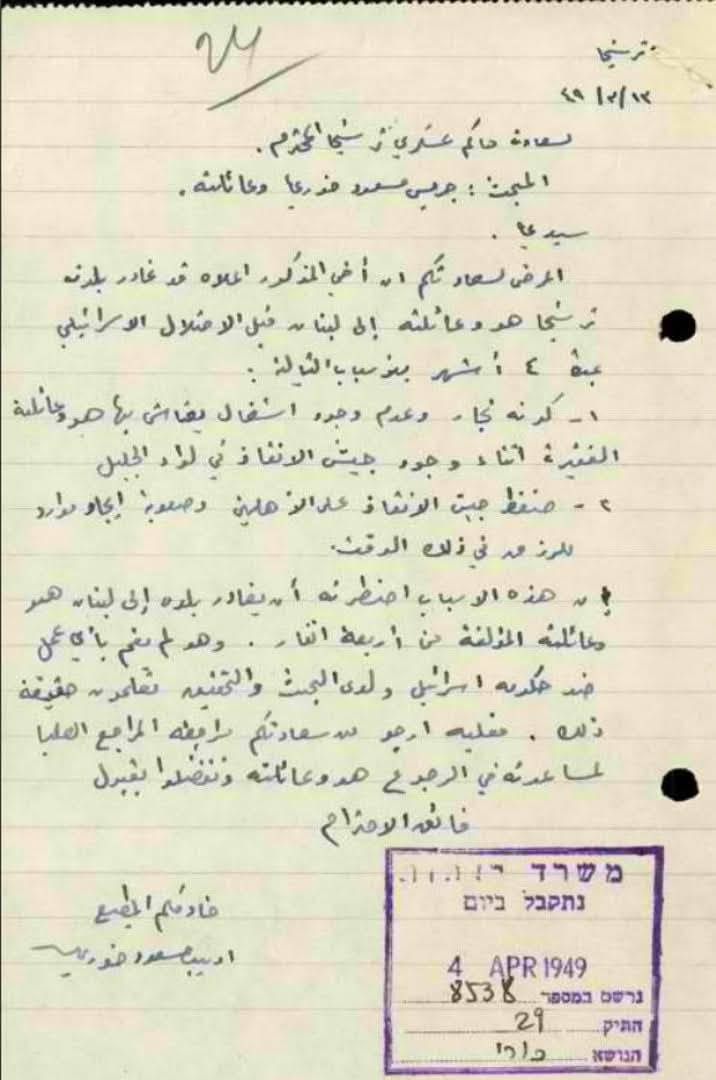 24
ترشيحا
٤٩/٣/١٣
لسعادة حاكم عسكري ترشيحا المحترم .
المبحث : جريس مسعود خوري وعائلته .
سيدي .
اعرض لسعادتكم ان أخي المذكور اعلاه قد غادر بلدته
ترشيحا هو وعائلته إلى لبنان قبل الاحتلال الاسرائيلي
بمدة ٤ أشهر للاسباب التالية :
١- كونه نجار وعدم وجود اشغال يعتاش بها هو وعائلته
الفقيرة اثناء وجود جيش الانقاذ في لواء الجليل
٢- ضغط جيش الانقاذ على الأهلين وصعوبة إيجاد موارد
للرزق في ذلك الوقت.
إن هذه الاسباب اضطرته أن يغادر بلده إلى لبنان هو
وعائلته المؤلفة من أربعة انفار . وهو لم يقم بأي عمل
ضد حكومة اسرائيل ولدى البحث والتحقيق تعلمون حقيقة
ذلك . فعليه ارجو من سعادتكم مراجعة المراجع العليا
لمساعدته في الرجوع هو وعائلته وتفضلوا بقبول
فائق الاحترام
خادمكم المطيع
اديب مسعود خوري
משרד
נתקבל ביום
4 APR 1949
נרשם במספר 8538
התיק 29
הנושא